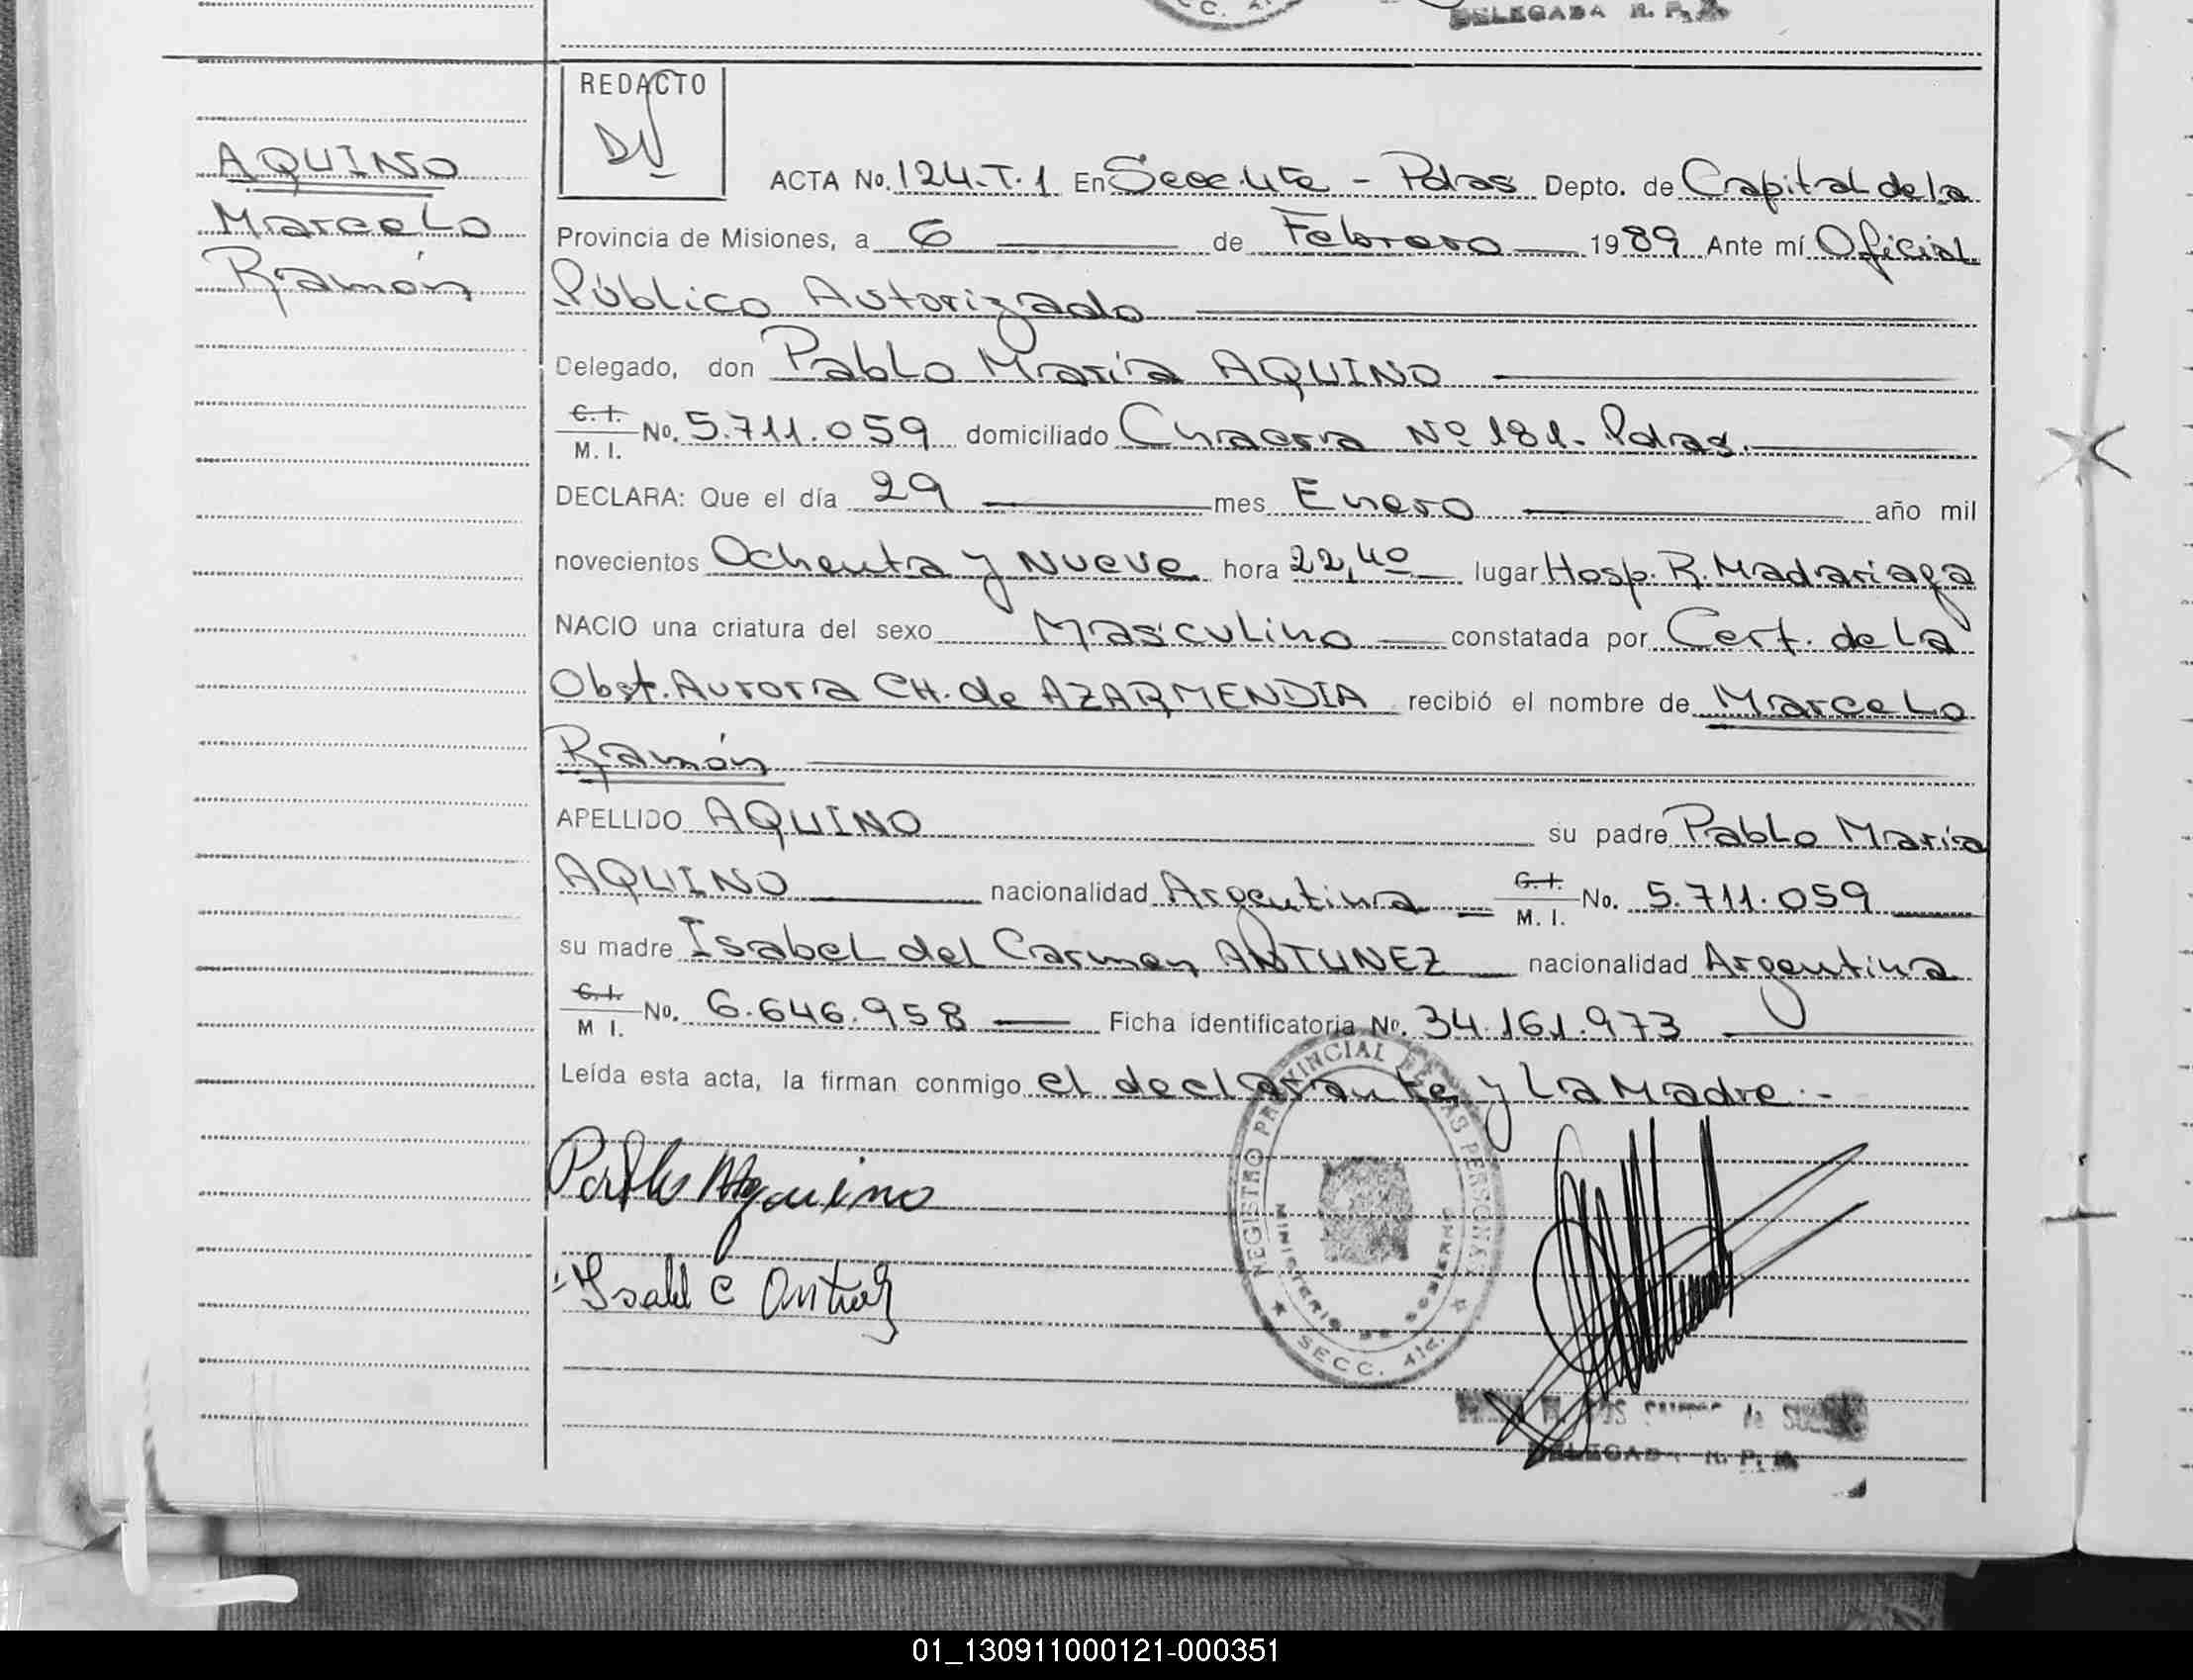 DELEGADA R. P.
REDACTO
AQUINO
Marcelo
Ramón
ACTA No. 124-T.1 En Secc. 4ta - Pdas Depto. de Capital de la
Provincia de Misiones, a 6 de Febrero 1989 Ante mí Oficial
Público Autorizado
Delegado, don Pablo María AQUINO
C. I.
M. I. No. 5.711.059 domiciliado Chacra Nº 181- Pdas.
DECLARA: Que el día 29 mes Enero año mil
novecientos Ochenta y Nueve hora 22,40 lugar Hosp. R. Madariaga
NACIO una criatura del sexo Masculino constatada por Cert. de la
Obst. Aurora CH. de AZARMENDIA recibió el nombre de Marcelo
Ramón
APELLIDO AQUINO su padre Pablo María
AQUINO nacionalidad Argentina C. I. M. I. No. 5.711.059
su madre Isabel del Carmen ANTUNEZ nacionalidad Argentina
C. I.
M I. No. 6.646.958 Ficha identificatoria No. 34.161.973
Leída esta acta, la firman conmigo el declarante y La Madre.-
REGISTRO PROVINCIAL DE LAS PERSONAS
MINISTERIO DE GOBIERNO
SECC. 41a.
Pablo M Aquino
Isabel C Antunez
DELEGADA R. P.
01_130911000121-000351